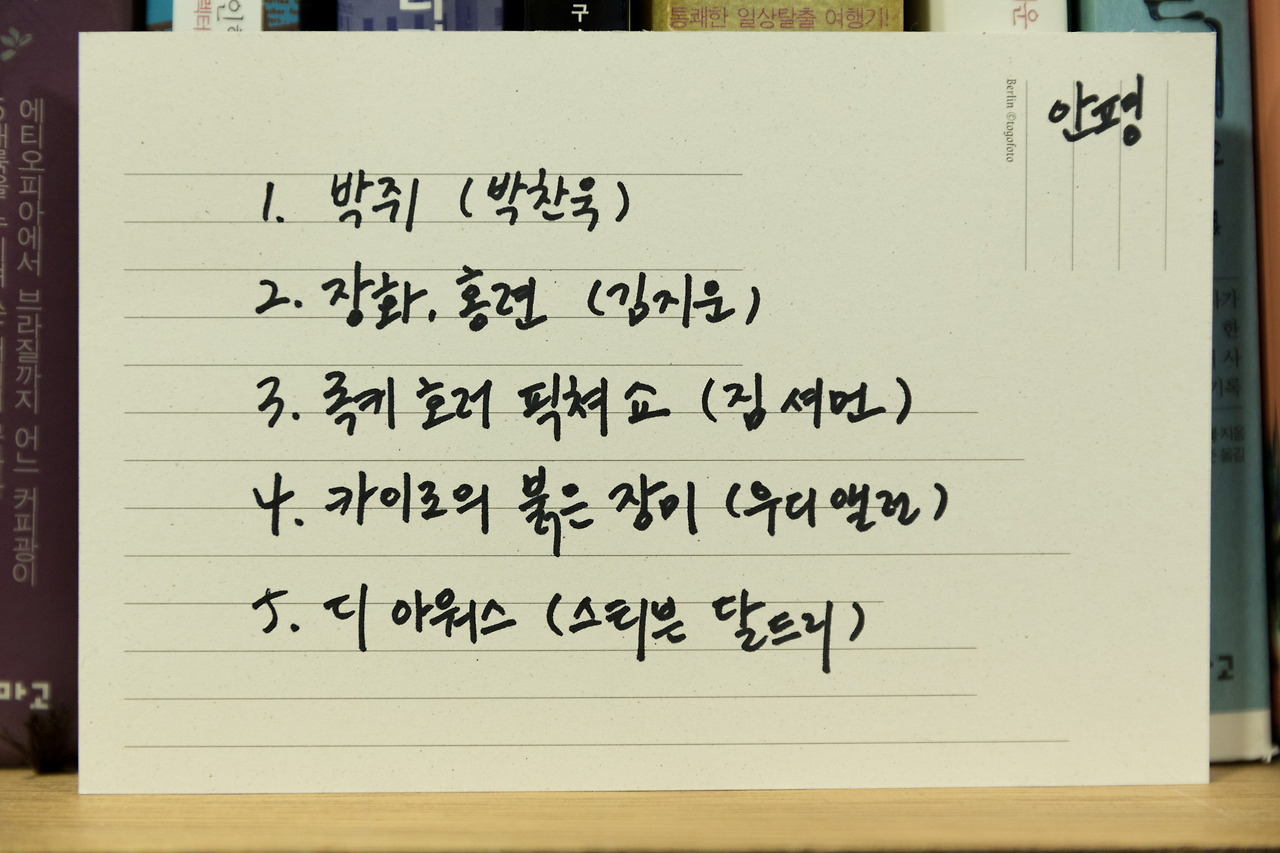 통쾌한 일상탈출 여행기!
에티오피아에서 브라질까지 어느 커피광이
마고
Berlin ©togofoto
안평
1. 박쥐 (박찬욱)
2. 장화, 홍련 (김지운)
3. 록키 호러 픽쳐 쇼 (짐 셔먼)
4. 카이로의 붉은 장미 (우디 앨런)
5. 디 아워스 (스티븐 달드리)